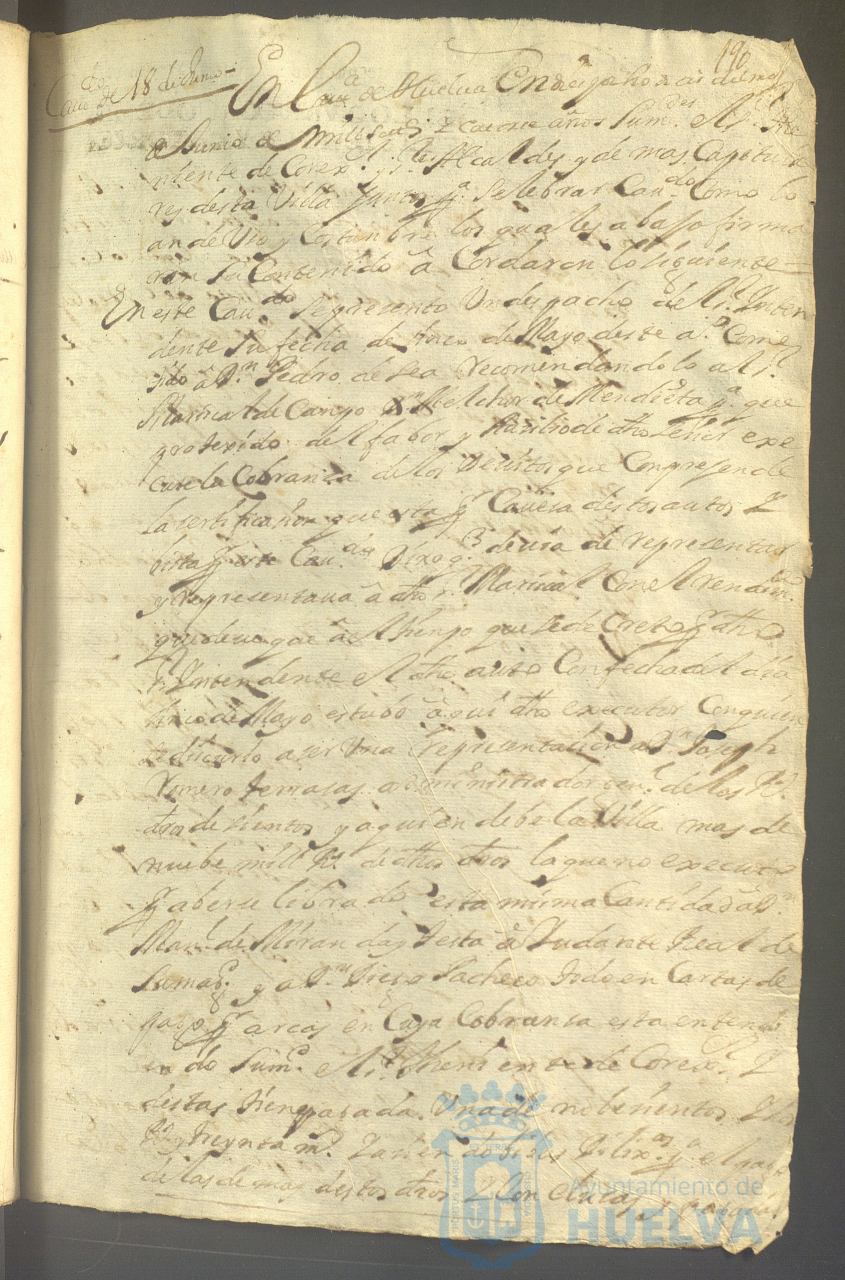 190
Cavdo de 18 de Junio
En la va de Huelva En dies y ocho dias del mes
de Junio de mill setts y catorse años Sum.des el Sr The
niente de Corexr y Sres Alcaldes y de mas Capitula
res desta Villa Juntos pa Selebrar Cavdo Como lo
an de Uso y Costunbre los quales abajo firma
ran su Contenido â Cordaron lo siguiente
En este Cavdo se presento Un despacho del Sr Inten
dente su fecha de sinco de Mayo deste ao Come
tido â Dn Pedro de Sea recomendandolo al Sr
Mariscal de Campo Dn Melchor de Mendieta pa que
protexido del fabor y Auxilio de dho señor exe
cute la Cobranza de los devitos que Conpresende
la sertificasion que esta pr Cavesa destos autos y
bista pr este Cavdo Dixo q devia de representar
y representava â dho Sr Mariscal Con el rendimto
que deve que âel tiempo que se decreto pr dho
Sr Intendente el dho auto Con fecha del dia
sinco de Mayo estubo âqui dho executor Conquien
se discurio aser Una representasion a Dn Joseph
Romero terrasas administrador Genl de los Rs
dros de sientos y aquien debe la Villa mas de
nuebe mill Rs de dhos dros la que no executo
pr aberse librado esta misma Cantidad a Dn
Manl de Miranda y testa â Yudante Real de
su magd y a Dn Diego Pacheco todo en Cartas de
pago pr arcas en Cuya Cobransa esta enten
dendo Sumd el Sr theniente de Corexr y
destas tiene pagada Una de nobesientos y
y treynta ms y an en
de las demas destos dros y Con
Ayuntamiento de
HUELVA